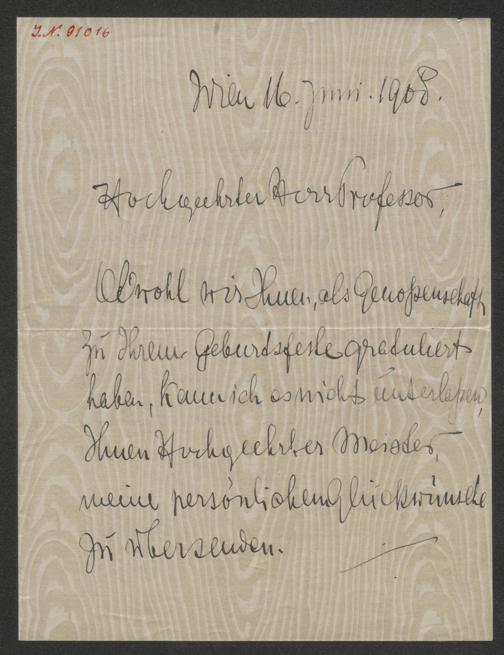 I.N. 91016
Wien 16. Juni. 1908.
Hochgeehrter Herr Professor,
Obwohl wir Ihnen, als Genoßenschaft
zu Ihrem Geburdsfeste gratuliert
haben, kann ich es nicht unterlaßen,
Ihnen Hochgeehrter Meister,
meine persönlichen Glückwünsche
zu übersenden.